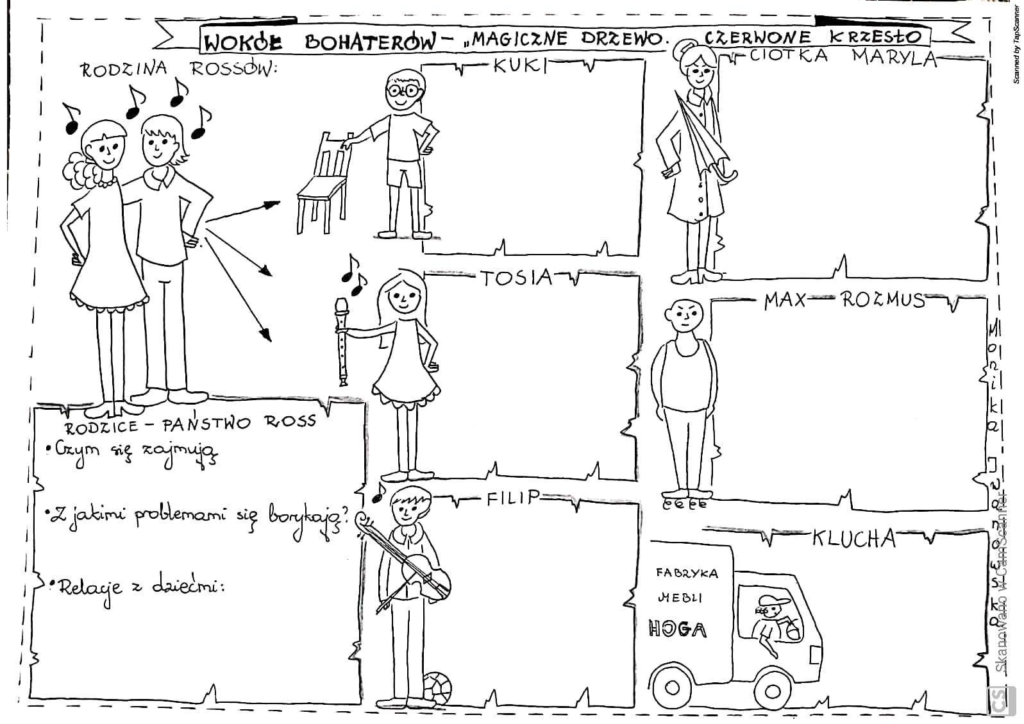 Scanned by TapScanner
WOKÓŁ BOHATERÓW – „MAGICZNE DRZEWO. CZERWONE KRZESŁO
RODZINA ROSSÓW:
KUKI
CIOTKA MARYLA
TOSIA
MAX ROZMUS
RODZICE – PAŃSTWO ROSS
• Czym się zajmują
• Z jakimi problemami się borykają?
• Relacje z dziećmi:
FILIP
KLUCHA
FABRYKA
MEBLI
HOGA
Monika
Skanowano w CamScanner
CS